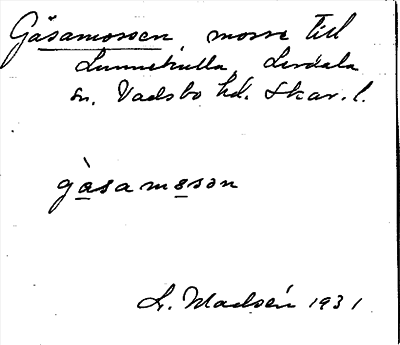 Gåsamossen mosse till
Lunnekulla, Lerdala
sn. Vadsbo hd. Skar. l.
gàsamosən
L. Madsén 1931